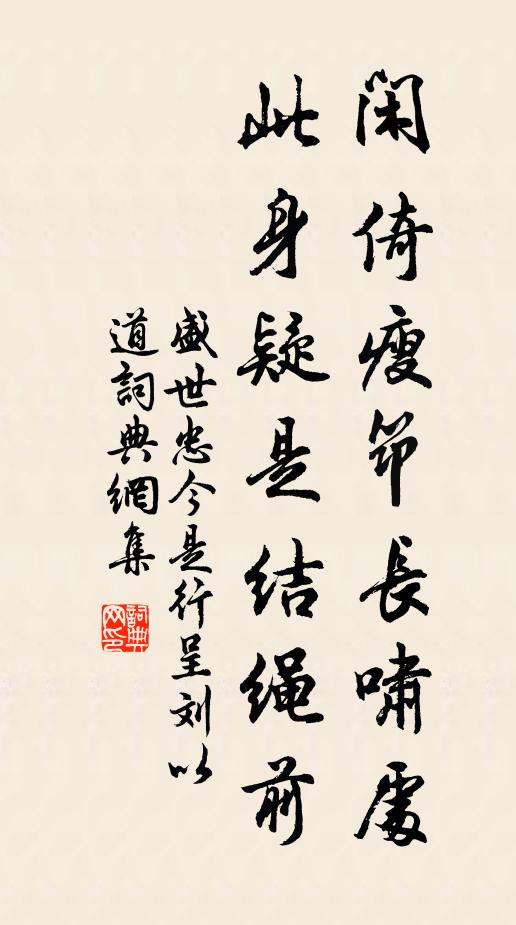 閑倚瘦筇長嘯處
此身疑是结绳前
盛世忠今是行呈刘以
道詞典網集
詞典
网印